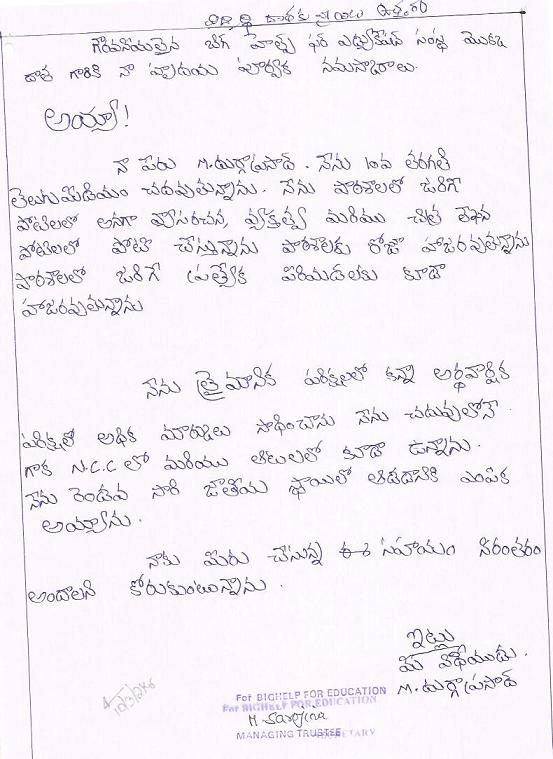 విద్యార్థి దాతకు వ్రాయు ఉత్తరం
గౌరవనీయులైన బిగ్ హెల్ప్ ఫర్ ఎడ్యుకేషన్ సంస్థ యొక్క
దాత గారికి నా హృదయ పూర్వక నమస్కారాలు.
అయ్యా!
నా పేరు M.దుర్గాప్రసాద్. నేను 10వ తరగతి
తెలుగుమీడియం చదువుతున్నాను. నేను పాఠశాలలో జరిగే
పోటీలలో అనగా వ్యాసరచన, వ్యక్తృత్వ మరియు చిత్ర లేఖన
పోటీలలో పోటీ చేస్తున్నాను పాఠశాలకు రోజూ హాజరవుతున్నాను
పాఠశాలలో జరిగే ప్రత్యేక పరీక్షలకు కూడా
హాజరవుతున్నాను
నేను త్రైమాసిక పరీక్షలలో కన్నా అర్థవార్షిక
పరీక్షల్లో అధిక మార్కులు సాధించాను నేను చదువులోనే
గాక N.C.C లో మరియు ఆటలలో కూడా ఉన్నాను.
నేను రెండవ సారి జాతీయ స్థాయిలో ఆడడానికి ఎంపిక
అయ్యాను.
నాకు మీరు చేసున్న ఈ సహాయం నిరంతరం
అందాలని కోరుకుంటున్నాను.
ఇట్లు
మీ విధేయుడు.
M.దుర్గాప్రసాద్
For BIGHELP FOR EDUCATION
For BIGHELP FOR EDUCATION
M Sarojina
MANAGING TRUSTEE SECRETARY